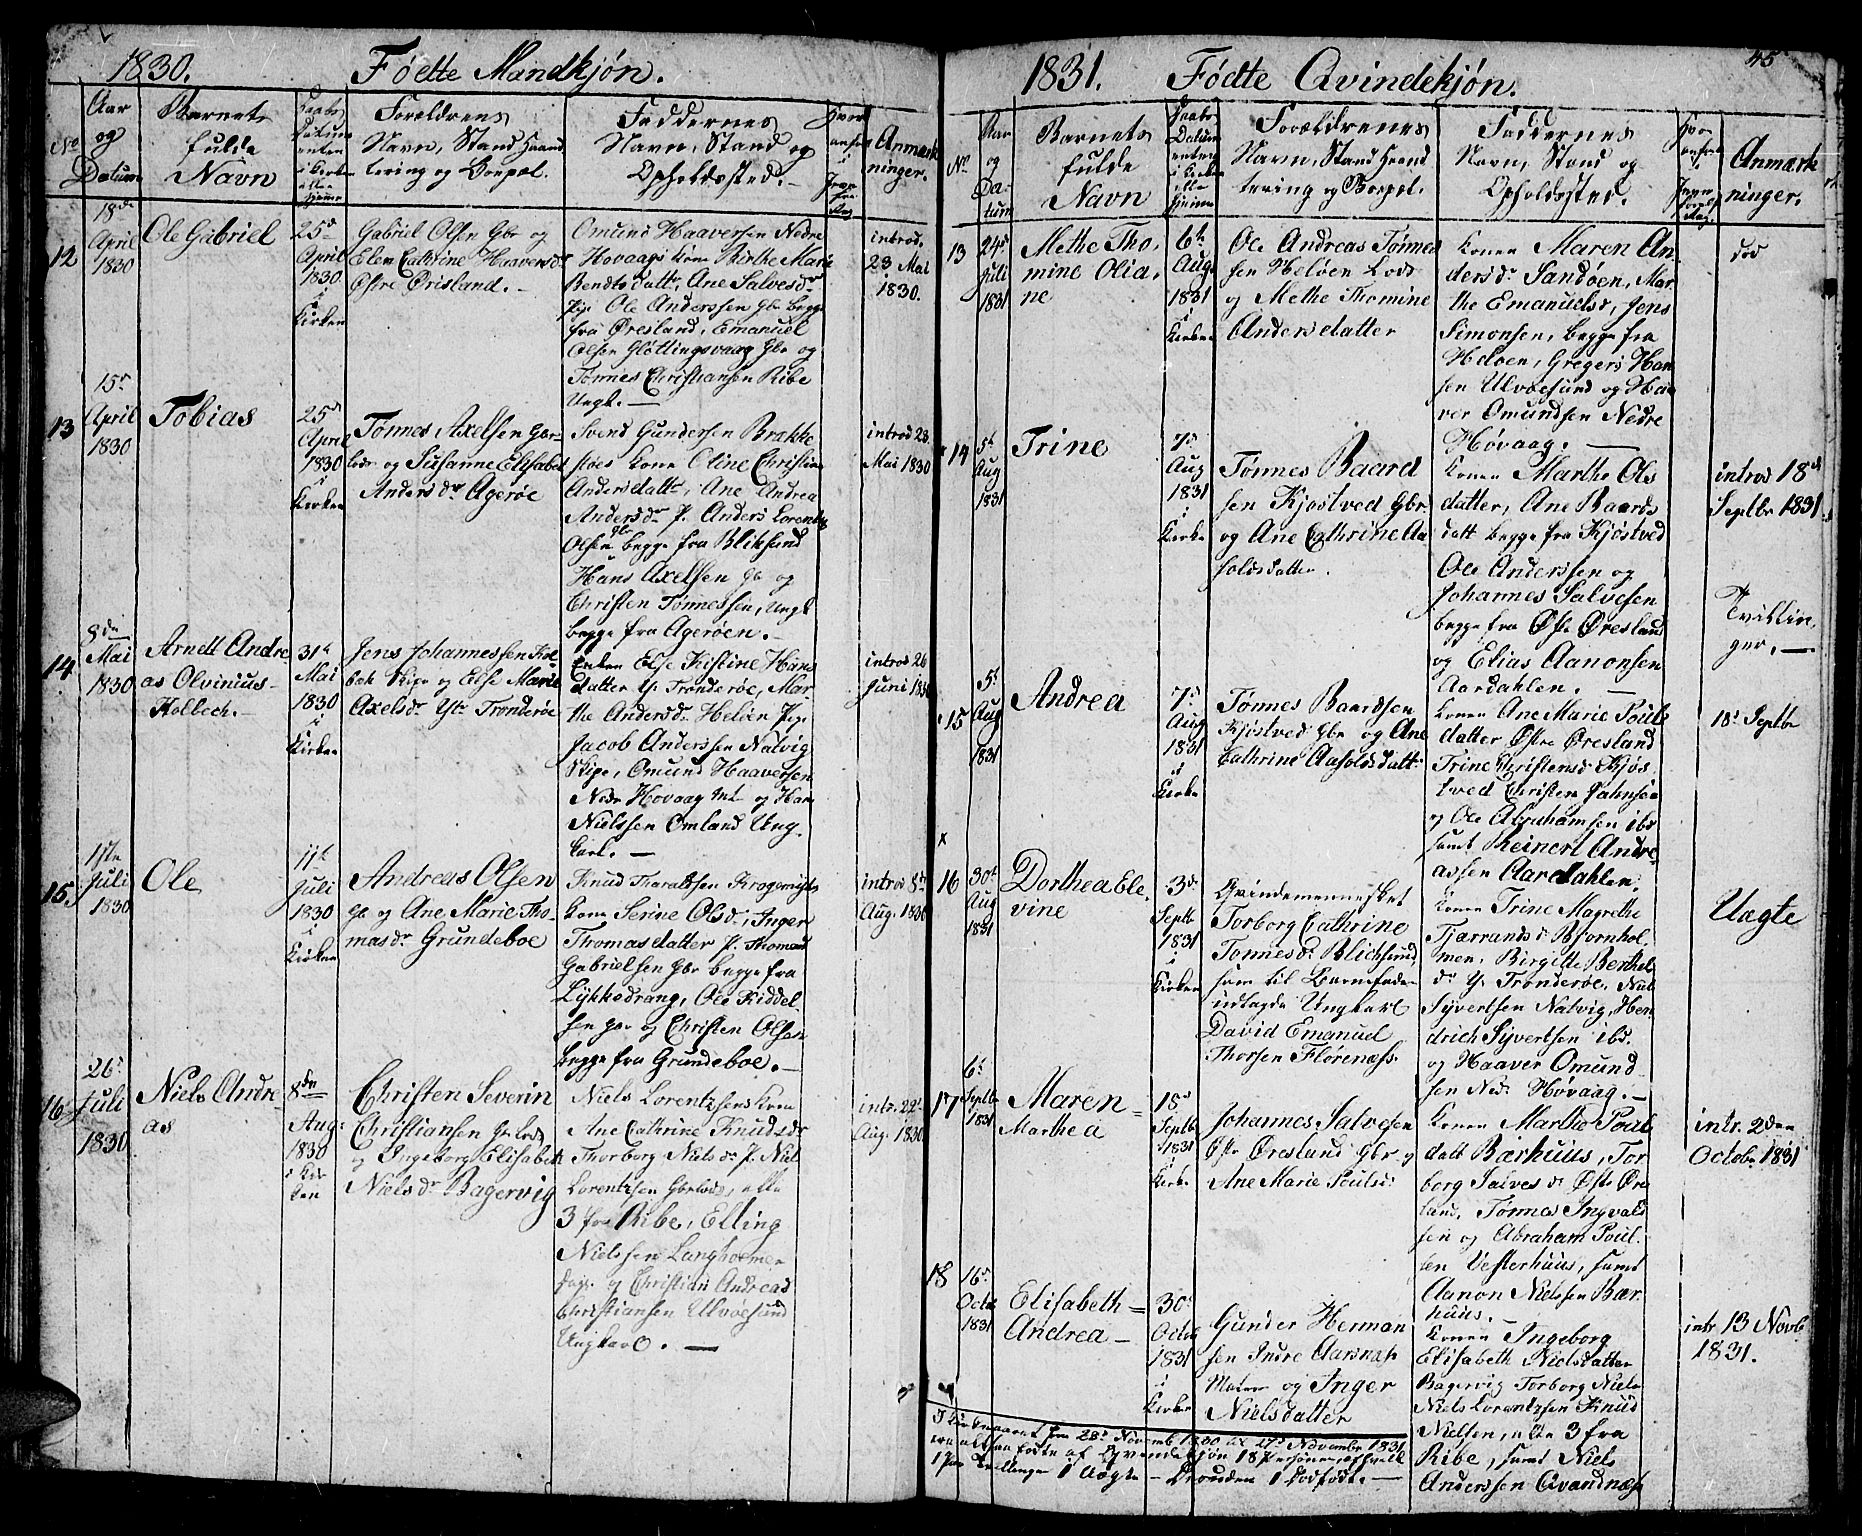 1830. Fødte Mandkjøn.
No
Aar
og
Datum
Barnets
fulde
Navn
Daabs
Datum
enten
i Kirken
eller
hjemme
Forældrenes
Navn, Stand Haand
tering og Boepæl.
Faddernes
Navn, Stand og
Opholdssted.
Anmærk
ninger.
12
18de
April
1830
Ole Gabriel
25de
April
1830
i
Kirken
Gabriel Olsen Gbr og
Elen Cathrine Haaversdr
Østre Ørisland.
Omund Haaversen Nedre
Hovaags kone Birthe Marie
Bendtsdattr, Ane Salvesdr
Pige Ole Anderssen Gbr begge
fra Øresland, Emanuel
Olsen Gløttingsvaag Gbr og
Tønnes Christiansen Ribe
Ungk.
introd.
23 Mai
1830.
13
15de
April
1830
Tobias
25de
April
1830
i
Kirken
Tønnes Axelsen Gbr
Lods og Susanne Elisabet
Andersdr Agerøe
Svend Gundersen Brække
støes kone Oline Christine
Andersdattr, Ane Andrea
Andersdr P. Anders Lorentz
Olsen Gbr begge fra Bliksund
Hans Axelsen Gbr og
Christen Tønnessen, Ungk
begge fra Agerøen.
introd 23
Mai 1830
14
8de
Mai
1830
Arndt Andre
as Olvinius
Holbech.
31te
Mai
1830
i
Kirken
Jens Johannessen Hol
bek Skip. og Else Marie
Axelsdr Ytr Trønderøe
Enken Else Kistine Hans
datter Yt. Trønderøe, Mar
the Andersdr Heløen Pige
Jacob Anderssen Natvig
Skipr, Omund Haaversen
Nedr Hovaag og Hans
Nielssen Omland Ung
karl.
introd 26
Juni 1830
15
1ste
Juli
1830
Ole
11te
Juli
1830
i
Kirken
Andreas Olsen
Gbr og Ane Marie Tho
masdr Grundeboe
Knud Tharaldsen Krogemyhr
kone Serine Olsdr, Inger
Thomasdatter P. Thomas
Gabrielsen Gbr begge fra
Lykkedrang, Ole Kiddel
sen Gbr og Christen Olsen
begge fra Grundeboe.
introd 8de
Aug. 1830
16
26de
Juli
1830
Niels Andre
as
8de
Aug.
1830
i Kir
ken
Christen Severin
Christiansen Gbr Lods
og Ingeborg Elisabeth
Nielsdr Bagervig
Niels Lorentzsens kone
Ane Cathrine Knudsdr
Thorborg Nielsdr P. Niels
Lorentzsen Gbr Lods, alle
3 fra Ribe, Elling
Nielssen Langholmen
og Christian Andreas
Christiansen Ulvøesund
Ungkarl.
intr. 22de
Aug. 1830
1831. Fødte Qvindekjøn. 45
No
Aar
og
Da-
tum
Barnets
fulde
Navn
Daabs
Datum
enten
i Kirken
eller
hjemme
Forældrenes
Navn, Stand Haand
tering og Boepæl.
Faddernes
Navn, Stand og
Opholdssted.
Anmærk
ninger.
13
24de
Juli
1831
Methe Tho-
mine Olia-
ne
6te
Aug
1831
i
Kirken
Ole Andreas Tønnes
sen Heløen Lods
og Methe Thomine
Andersdatter
Konen Maren An-
dersdr Sandøen, Mar-
the Emanuelsd, Jens
Simonsen, begge fra
Heløen, Gregers Han
sen Ulvøesund og Haa
ver Omundsen Nedre
Høvaag.
død
14
5te
Aug
1831
Trine
7de
Aug
1831
i
Kirke
Tønnes Baard
sen Kjøstved Gbr
og Ane Cathrine Aa
holdsdatter.
Konen Marthe Ols
datter, Ane Baards
datt begge fra Kjøstved
Ole Anderssen og
Johannes Salvesen
begge fra Østr Øresland
og Elias Aanonsen
Aardahlen.
introd 18de
Septbr 1831
Tvillin
ger.
15
5te
Aug
1831
Andrea
7de
Aug
1831
i
Kirken
Tønnes Baardsen
Kjøstved Gbr og Ane
Cathrine Aaholdsdatt
Konen Ane Marie Pouls
datter Østre Øresland
Trine Christensd Kjøs
tved Christen Jahnsen
og Ole Abrahamsen ibd
samt Reinert Andre
assen Aardahlen.
18de Septbr
16
30te
Aug
1831
Dorthea Ele-
vine
3de
Septbr
1831
i
Kirken
Qvindemennesket
Torborg Cathrine
Tønnesdr Blichsund
som til Barnefader
udlagde Ungkarl
David Emanuel
Thorsen Florenæss.
Konen Trine Magrethe
Tjærrandsdr Bjornhol-
men, Birgitte Berthel
dr Y. Trønderøe, Niels
Syvertsen Natvig, Hen
drich Syvertsen ibd.
og Haaver Omund
sen Nedr Høvaag.
Uægte
17
6te
Septbr
1831
Maren
Marthea
18de
Septbr
1831
i
Kirke
Johannes Salvesen
Østr Øresland Gbr og
Ane Marie Poulsdr
Konen Marthe Poul
datt Bærhuus, Tor
borg Salvesdr Østr Øre
land, Tønnes Ingvald
sen og Abraham Poul-
sen Vesterhuus, samt
Aanon Nielssen Bær-
huus.
intr. 2den
Octobr 1831
18
16de
Octbr
1831
Elisabeth
Andrea
30te
Octbr
1831
i
Kirke
Gunder Herman
sen Indre Aarsnæss
og Inger
Nielsdatter
Konen Ingeborg
Elisabeth Nielsdatter
Bagervig Torborg Niels
Niels Lorentzsen Knud
Nielsen, alle 3 fra
Ribe, samt Niels
Anderssen Qvandnæss
intr. 13 Novb
1831.
I Kirkeaaret fra 28de Novemb 1830 til 27de November 1831
ere altsaa fødte af Qvindekjøn 18 Personer
1 Par Tvillinger 1 Uægte Desuden 1 Dødfødt.